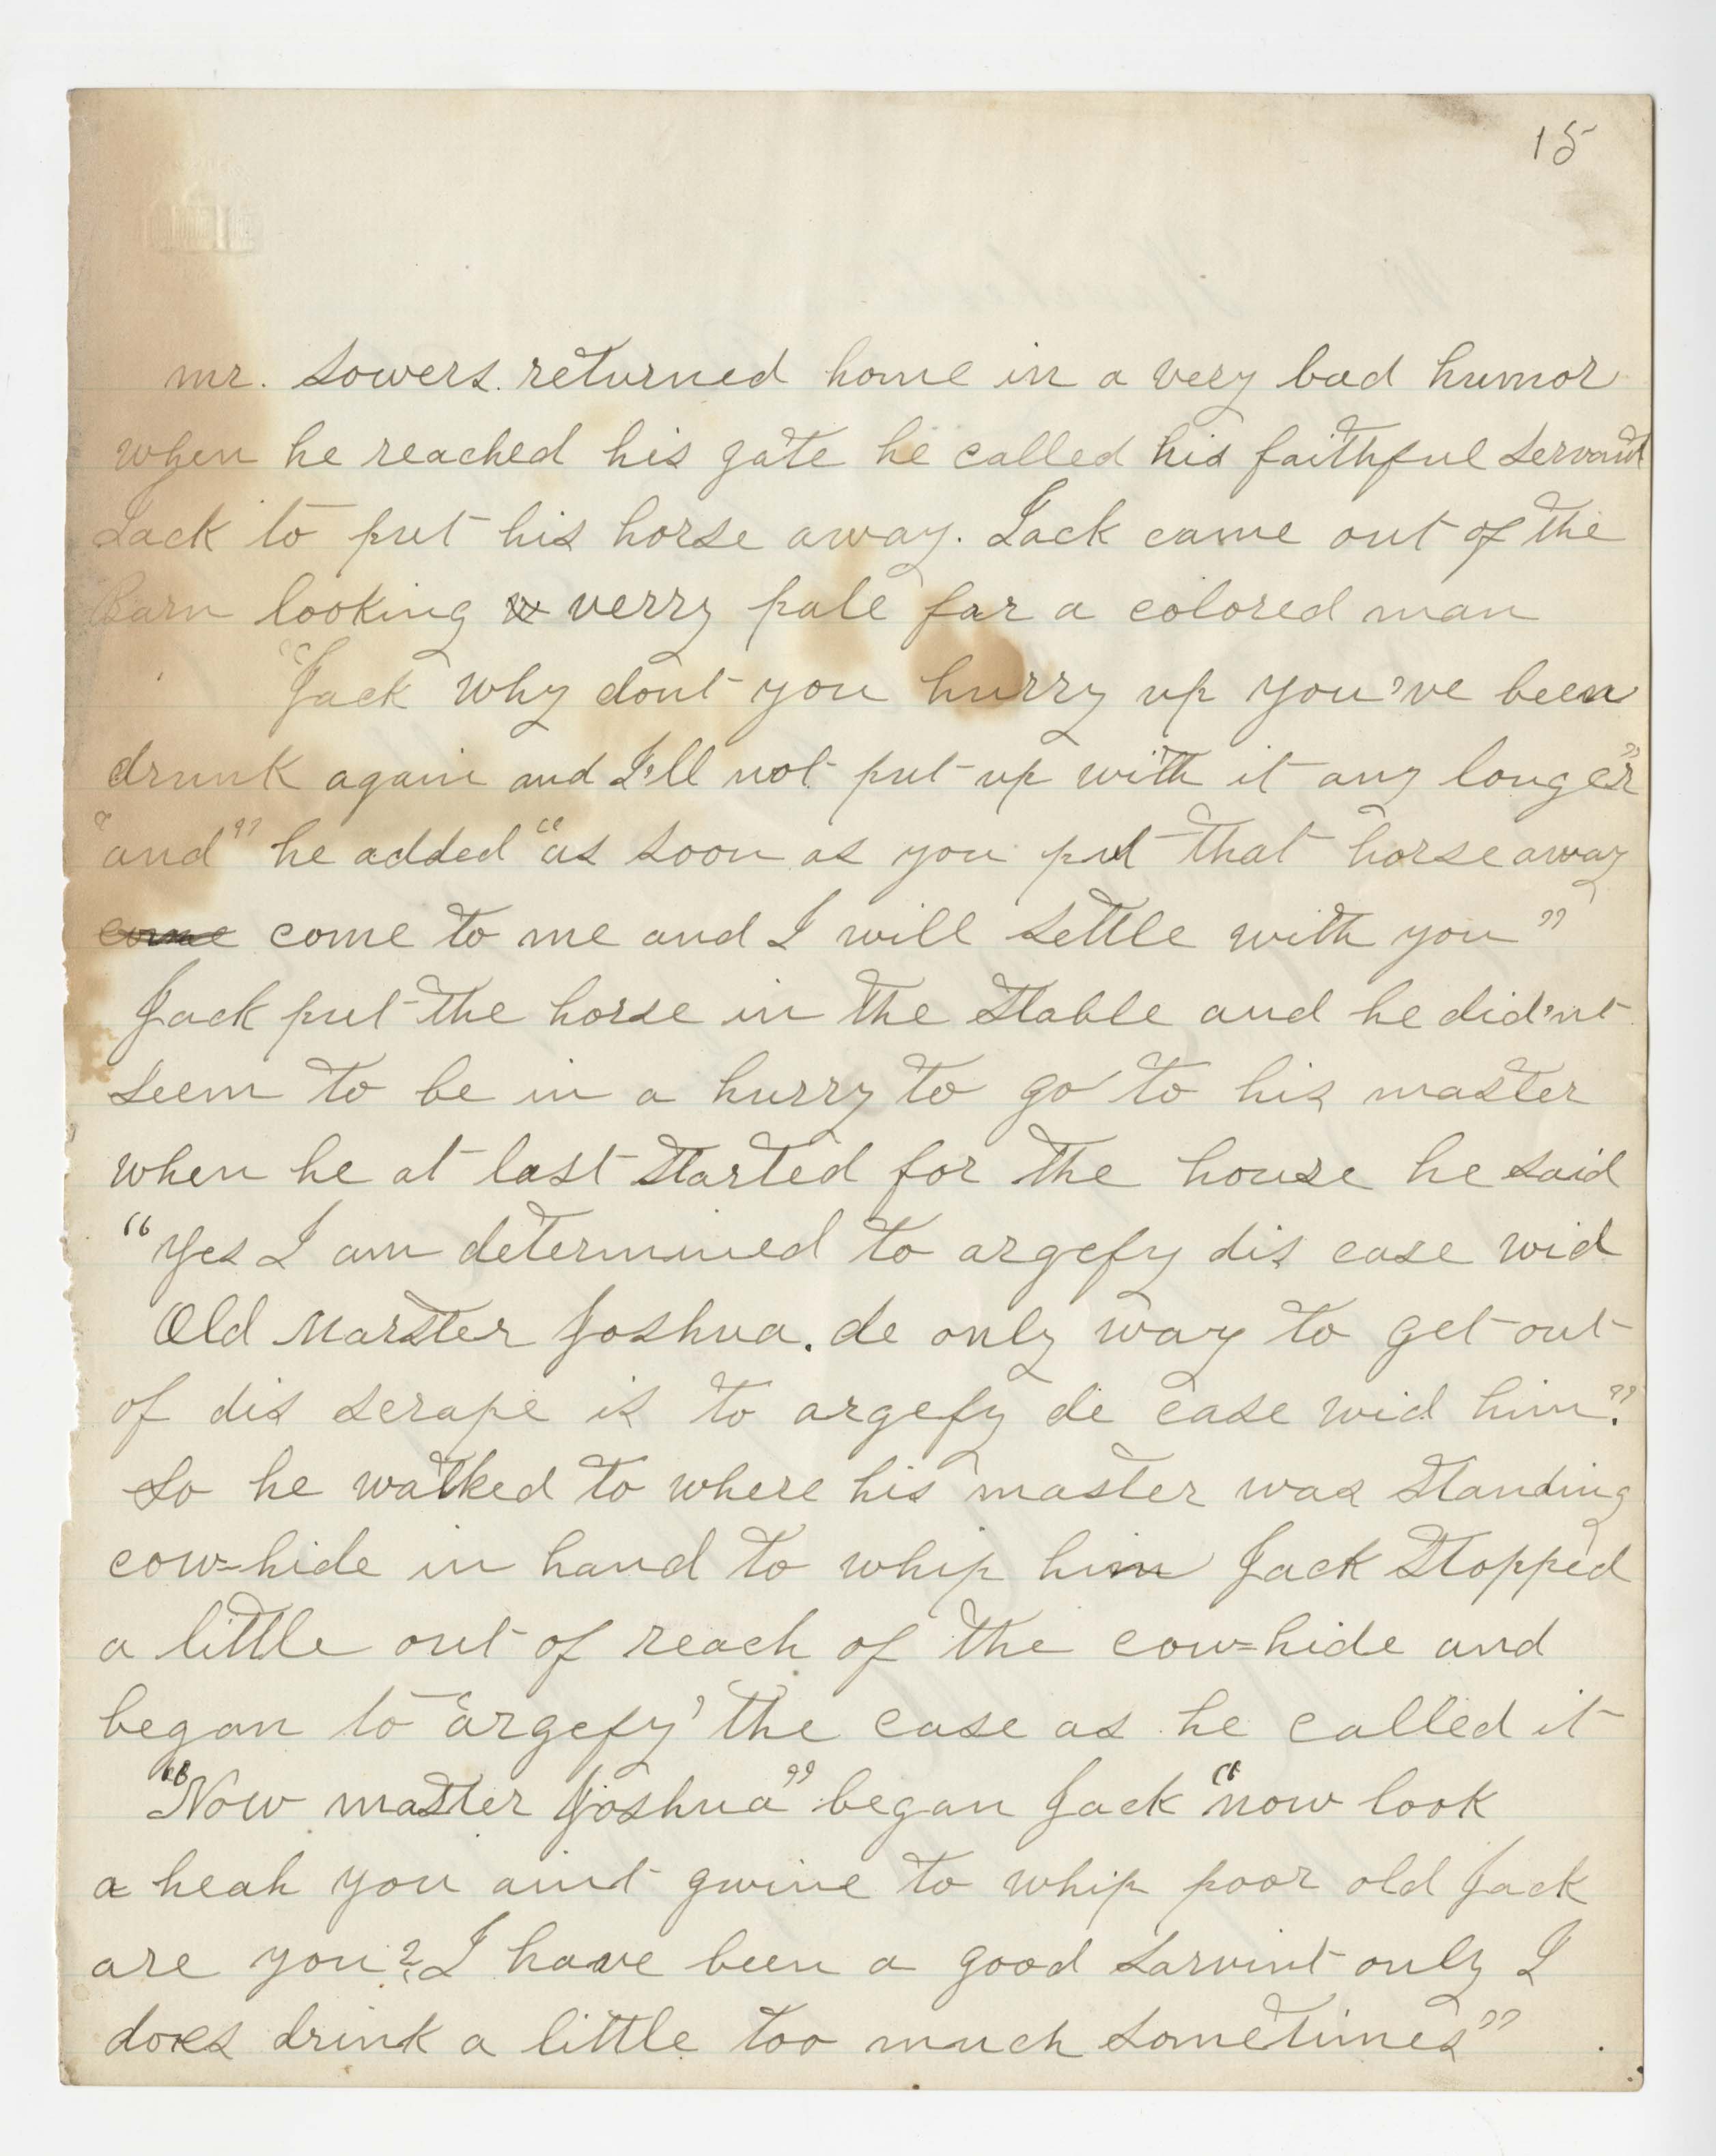 15
mr. Sowers. returned home in a very bad humor
when he reached his gate he called his faithful servant
Jack to put his horse away. Jack came out of the
Barn looking verry pale far a colored man
"Jack why dont you hurry up you've been
drunk again and I'll not put up with it any longer"
"and" he added "as soon as you put that horse away
come come to me and I will settle with you"
Jack put the horse in the stable and he did'nt
seem to be in a hurry to go to his master
when he at last started for the house he said
"Yes I am determined to argefy dis case wid
Old Marster Joshua. de only way to get out
of dis scrape is to argefy de case wid him."
So he walked to where his master was standing
cow=hide in hand to whip him Jack stopped
a little out of reach of the cow=hide and
began to 'argefy' the case as he called it
"Now master Joshua" began Jack "now look
a heah you aint gwine to whip poor old Jack
are you? I have been a good sarvint only I
does drink a little too much sometimes"